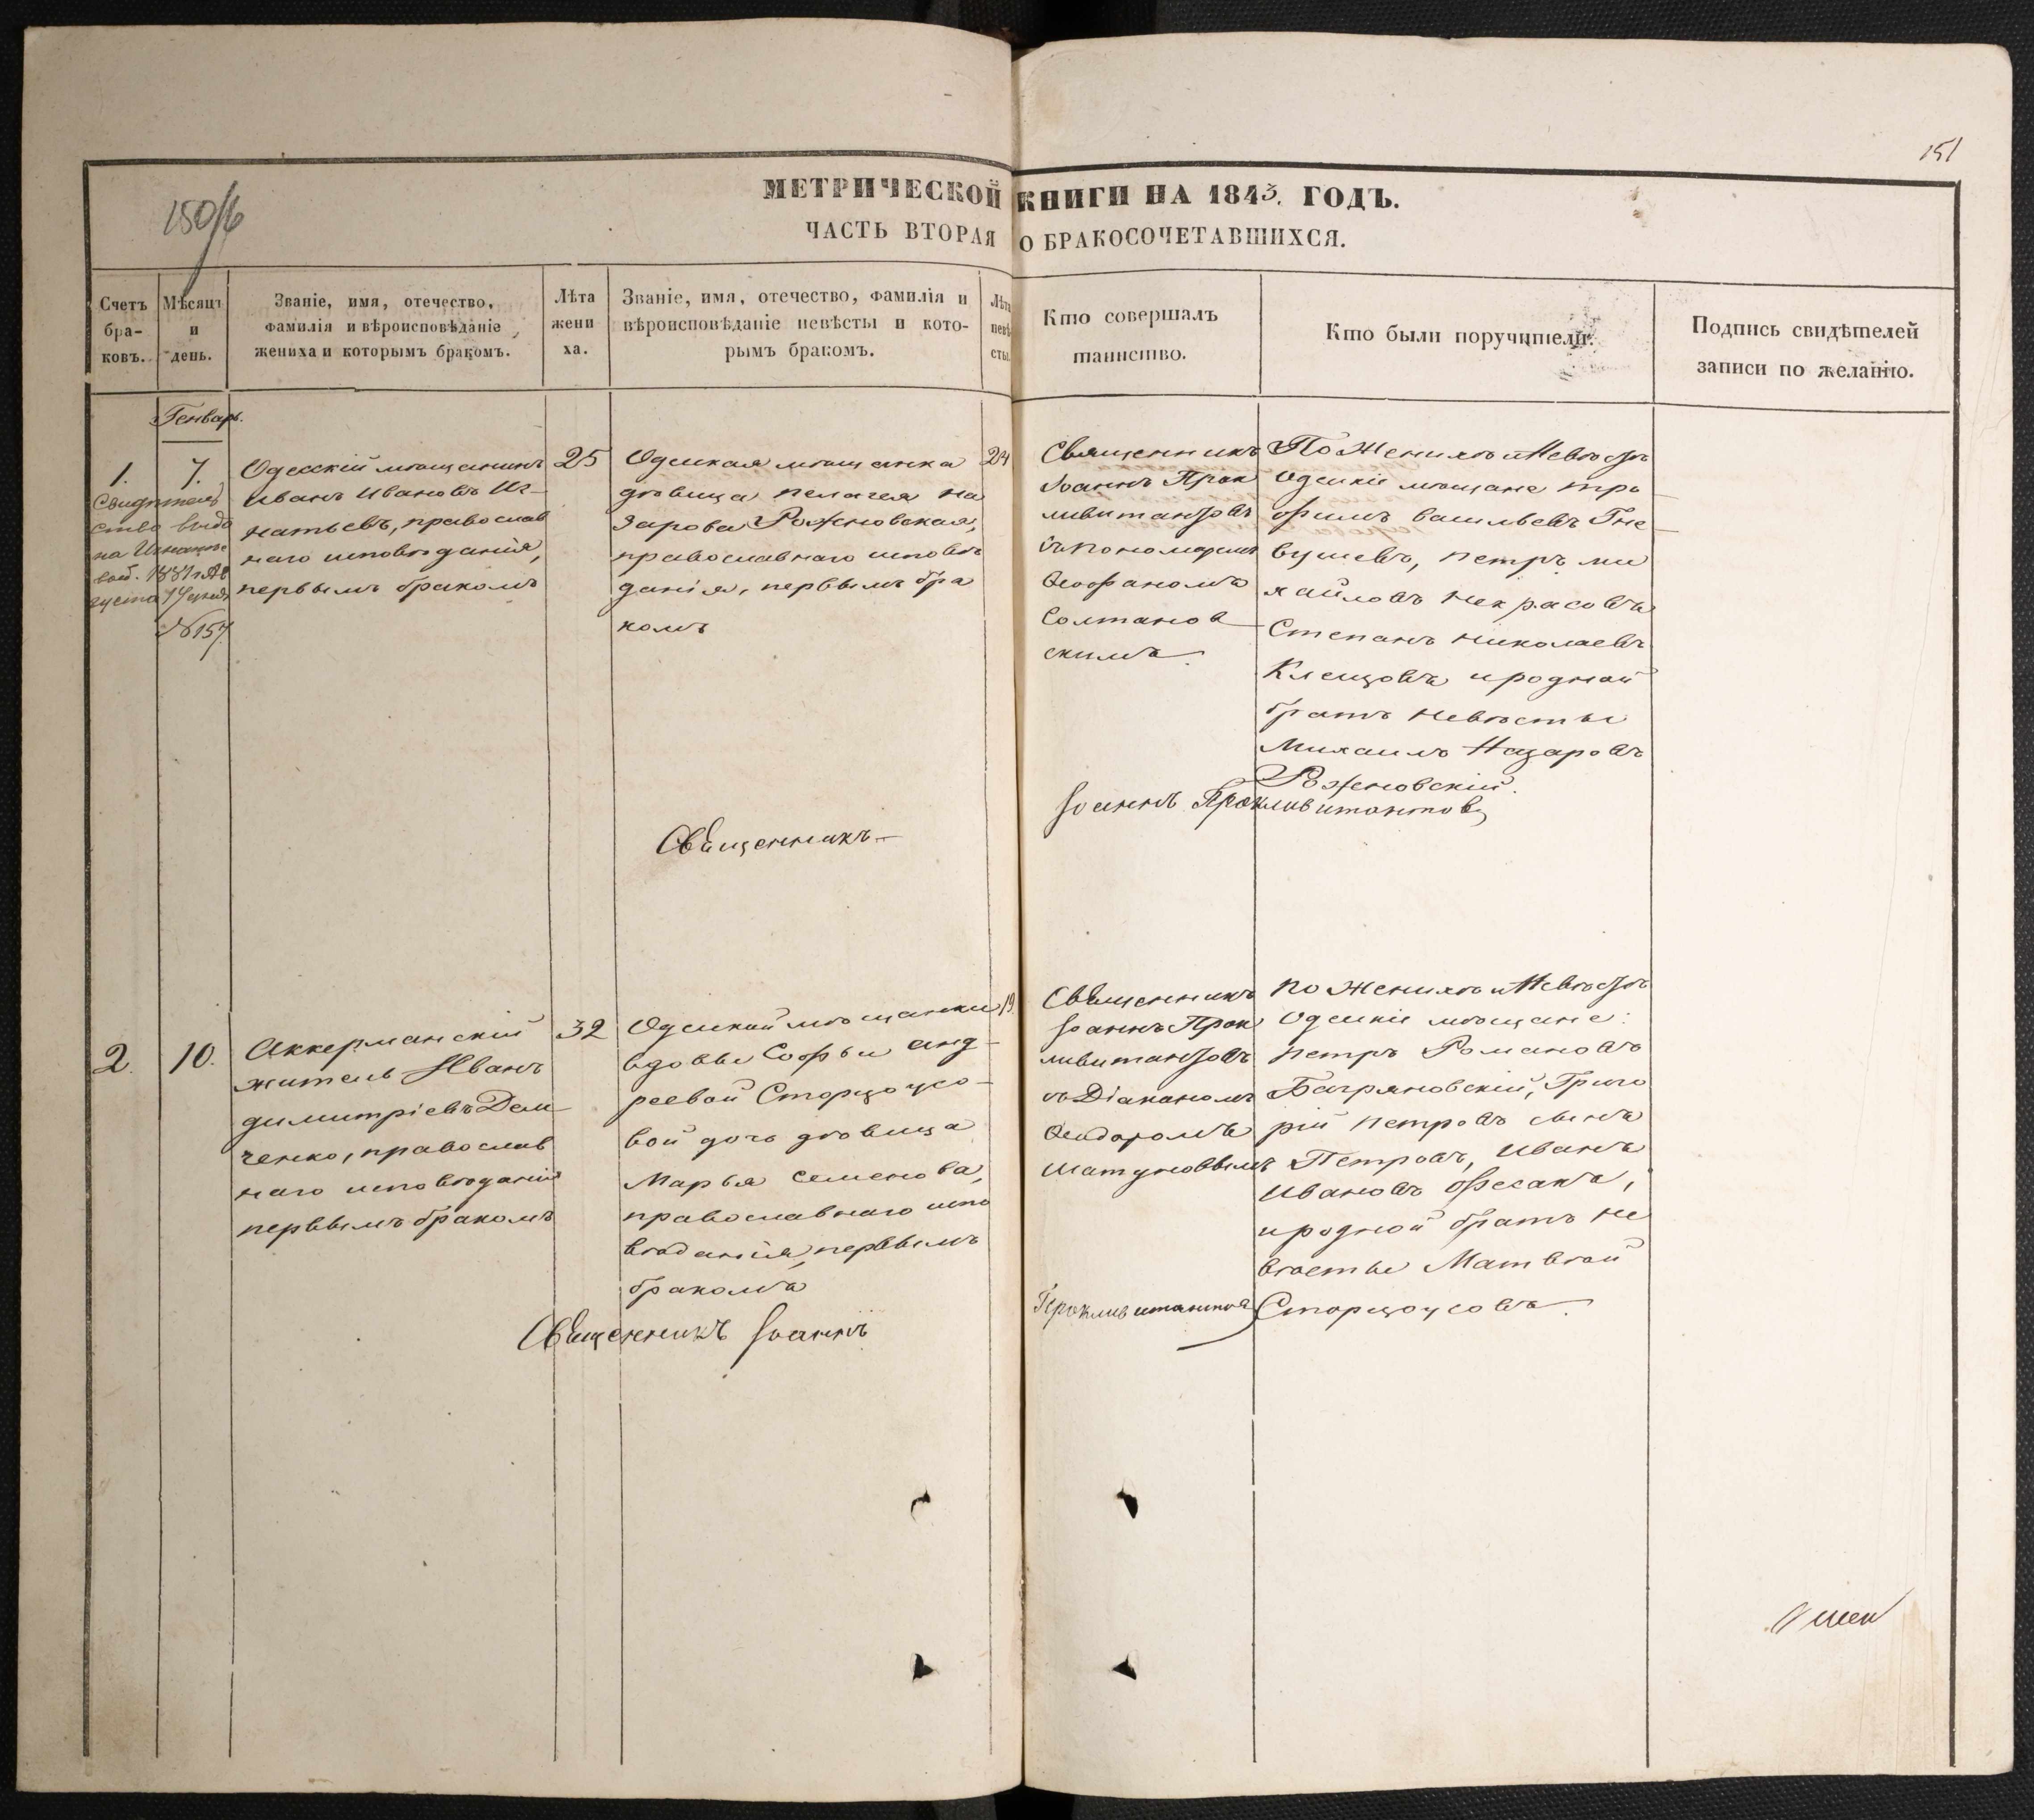 151
150/6
МЕТРИЧЕСКОЙ КНИГИ НА 1843. ГОДЪ.
ЧАСТЬ ВТОРАЯ О БРАКОСОЧЕТАВШИХСЯ.
Счетъ
бра-
ковъ.
Мѣсяцъ
и
день.
Званіе, имя, отечество,
фамилія и вѣроисповѣданіе
жениха и которымъ бракомъ.
Лѣта
жени
ха.
Званіе, имя, отечество, фамилія и
вѣроисповѣданіе невѣсты и кото-
рымъ бракомъ.
Лѣта
невѣ
сты.
Кто совершалъ
таинство.
Кто были поручители.
Подпись свидѣтелей
записи по желанію.
Генварь.
1.
7.
Свидѣтель
ство выда
но
1881 г Ав
густа
№ 157
Одесскій мѣщанинъ
Иванъ Ивановъ Иг-
натьевъ, православ
наго исповѣданія,
первымъ бракомъ
25
Одеская мѣщанка
дѣвица пелагея на
зарова Роженовская,
православнаго исповѣ
данія, первымъ бра
комъ
24
Священникъ
Іоаннъ Прок
ливитантовъ
съ пономаремъ
Феофаномъ
Солтанов
скимъ.
По Женихѣ и Невѣстѣ
Одескіе мѣщане тро
фимъ васильевъ Гне
вушевъ, петръ ми
хайловъ некрасовъ
Степанъ николаевъ
Клещовъ и родной
братъ невѣсты
Михаилъ Назаровъ
Роженовскій.
Священникъ Іоаннъ Прокливитантовъ
2.
10.
Аккерманскій
житель Иванъ
димитріевъ Дем
ченко, православ
наго исповѣданія
первымъ бракомъ
32
Одеской мѣщанки
вдовы Софьи анд-
реевой Сторчоусо-
вой дочь дѣвица
Марья семенова,
православнаго испо
вѣданія, первымъ
бракомъ
19
Священникъ
Іоаннъ Прок
ливитантовъ
съ Діакономъ
Феодоромъ
Шатуновымъ
по Женихѣ и Невѣстѣ
Одескіе мѣщане:
петръ Романовъ
Багряновскій, Григо
рій петровъ сынъ
Петровъ, Иванъ
Ивановъ Фесакъ,
и родной братъ не
вѣсты Матвѣй
Сторчоусовъ.
Священникъ Іоаннъ Прокливитантовъ